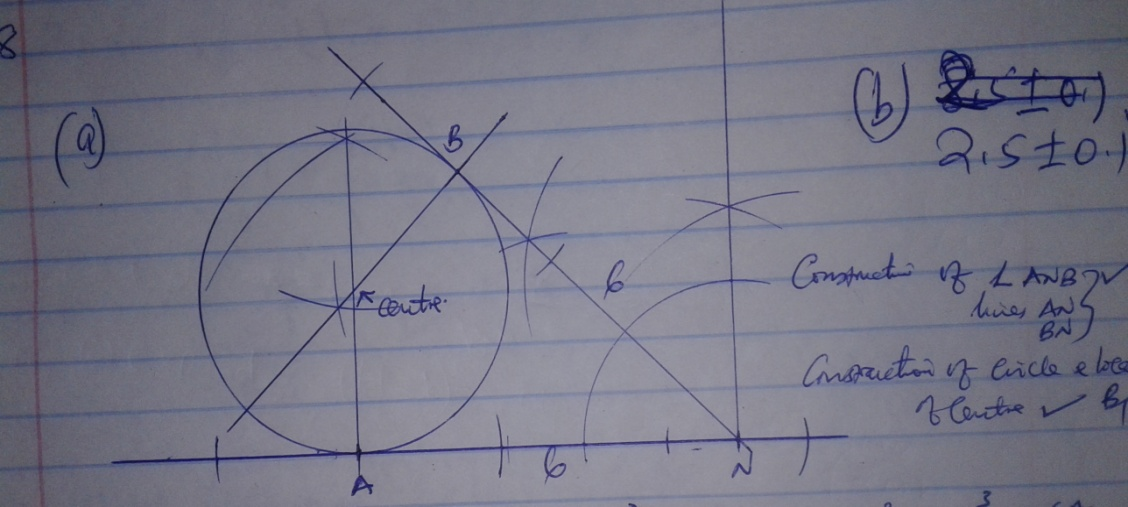 8
(a)
B
centre.
6
6
A
N
(b) 2.5 ± 0.1
2.5 ± 0.1
Construction of ∠ ANB ✓
lines AN
BN
Construction of circle &
of Centre ✓ B1
3